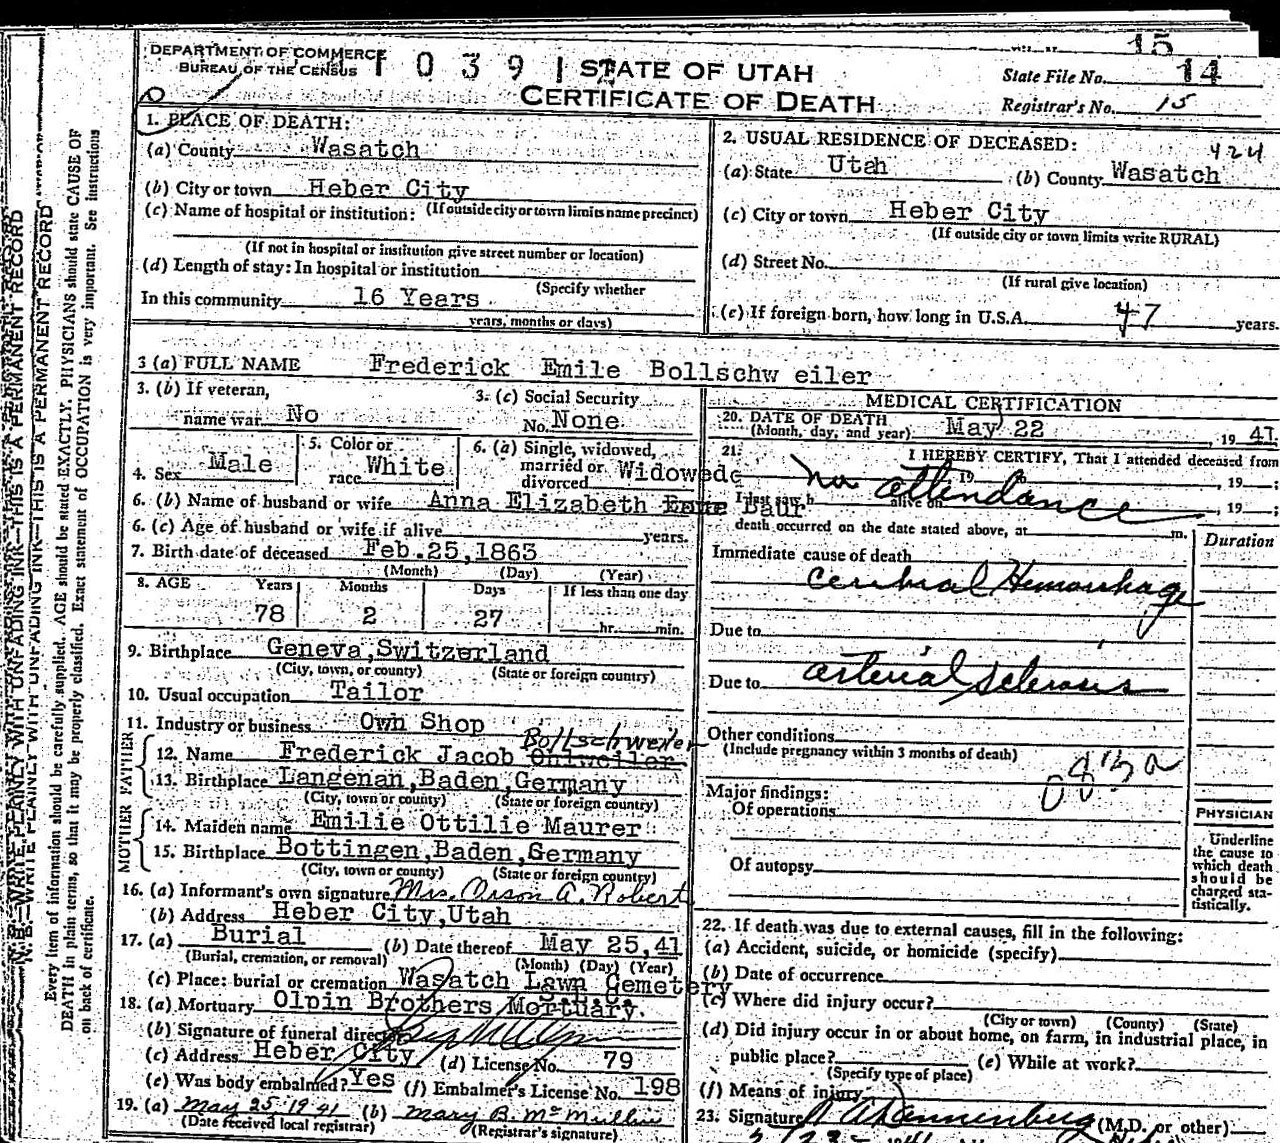 15
DEPARTMENT OF COMMERCE
BUREAU OF THE CENSUS
1039
STATE OF UTAH
CERTIFICATE OF DEATH
State File No. 14
Registrar's No. 15
1. PLACE OF DEATH:
(a) County Wasatch
(b) City or town Heber City
(If outside city or town limits name precinct)
(c) Name of hospital or institution:
(If not in hospital or institution give street number or location)
(d) Length of stay: In hospital or institution
(Specify whether
In this community 16 Years
years, months or days)
2. USUAL RESIDENCE OF DECEASED: 424
(a) State Utah (b) County Wasatch
(c) City or town Heber City
(If outside city or town limits write RURAL)
(d) Street No.
(If rural give location)
(e) If foreign born, how long in U.S.A. 47 years.
3 (a) FULL NAME Frederick Emile Bollschw eiler
3. (b) If veteran,
name war No
3. (c) Social Security
No. None
4. Sex Male
5. Color or
race White
6. (a) Single, widowed,
married or
divorced Widowedc
6. (b) Name of husband or wife Anna Elizabeth Baur
6. (c) Age of husband or wife if alive years.
7. Birth date of deceased Feb.25,1863
(Month) (Day) (Year)
8. AGE Years Months Days If less than one day
78 2 27 hr. min.
9. Birthplace Geneva,Switzerland
(City, town, or county) (State or foreign country)
10. Usual occupation Tailor
11. Industry or business Own Shop
FATHER
Bollschweiler
12. Name Frederick Jacob
13. Birthplace Langenan,Baden,Germany
(City, town or county) (State or foreign country)
MOTHER
14. Maiden name Emilie Ottilie Maurer
15. Birthplace Bottingen,Baden,Germany
(City, town or county) (State or foreign country)
16. (a) Informant's own signature Mrs. Orson A. Robert
(b) Address Heber City,Utah
17. (a) Burial (b) Date thereof May 25,41
(Burial, cremation, or removal) (Month) (Day) (Year)
(c) Place: burial or cremation Wasatch Lawn Cemetery
18. (a) Mortuary Olpin Brothers Mortuary.
(b) Signature of funeral director
(c) Address Heber City (d) License No. 79
(e) Was body embalmed? Yes (f) Embalmer's License No. 198
19. (a) May 25 1941 (b) Mary B. McMullin
(Date received local registrar) (Registrar's signature)
MEDICAL CERTIFICATION
20. DATE OF DEATH
(Month, day, and year) May 22, 19 41
21. I HEREBY CERTIFY, That I attended deceased from
no attendance
19 , 19 ;
I last saw h alive on , 19 ;
death occurred on the date stated above, at m.
Duration
Immediate cause of death
Cerebral Hemorrhage
Due to
Due to arterial sclerosis
Other conditions
(Include pregnancy within 3 months of death)
083a
Major findings:
Of operations
Of autopsy
PHYSICIAN
Underline
the cause to
which death
should be
charged sta-
tistically.
22. If death was due to external causes, fill in the following:
(a) Accident, suicide, or homicide (specify)
(b) Date of occurrence
(c) Where did injury occur?
(City or town) (County) (State)
(d) Did injury occur in or about home, on farm, in industrial place, in
public place? (e) While at work?
(Specify type of place)
(f) Means of injury
23. Signature (M.D. or other)
N.B.—WRITE PLAINLY WITH UNFADING INK—THIS IS A PERMANENT RECORD
Every item of information should be carefully supplied. AGE should be stated EXACTLY. PHYSICIANS should state CAUSE OF
DEATH in plain terms, so that it may be properly classified. Exact statement of OCCUPATION is very important. See instructions
on back of certificate.